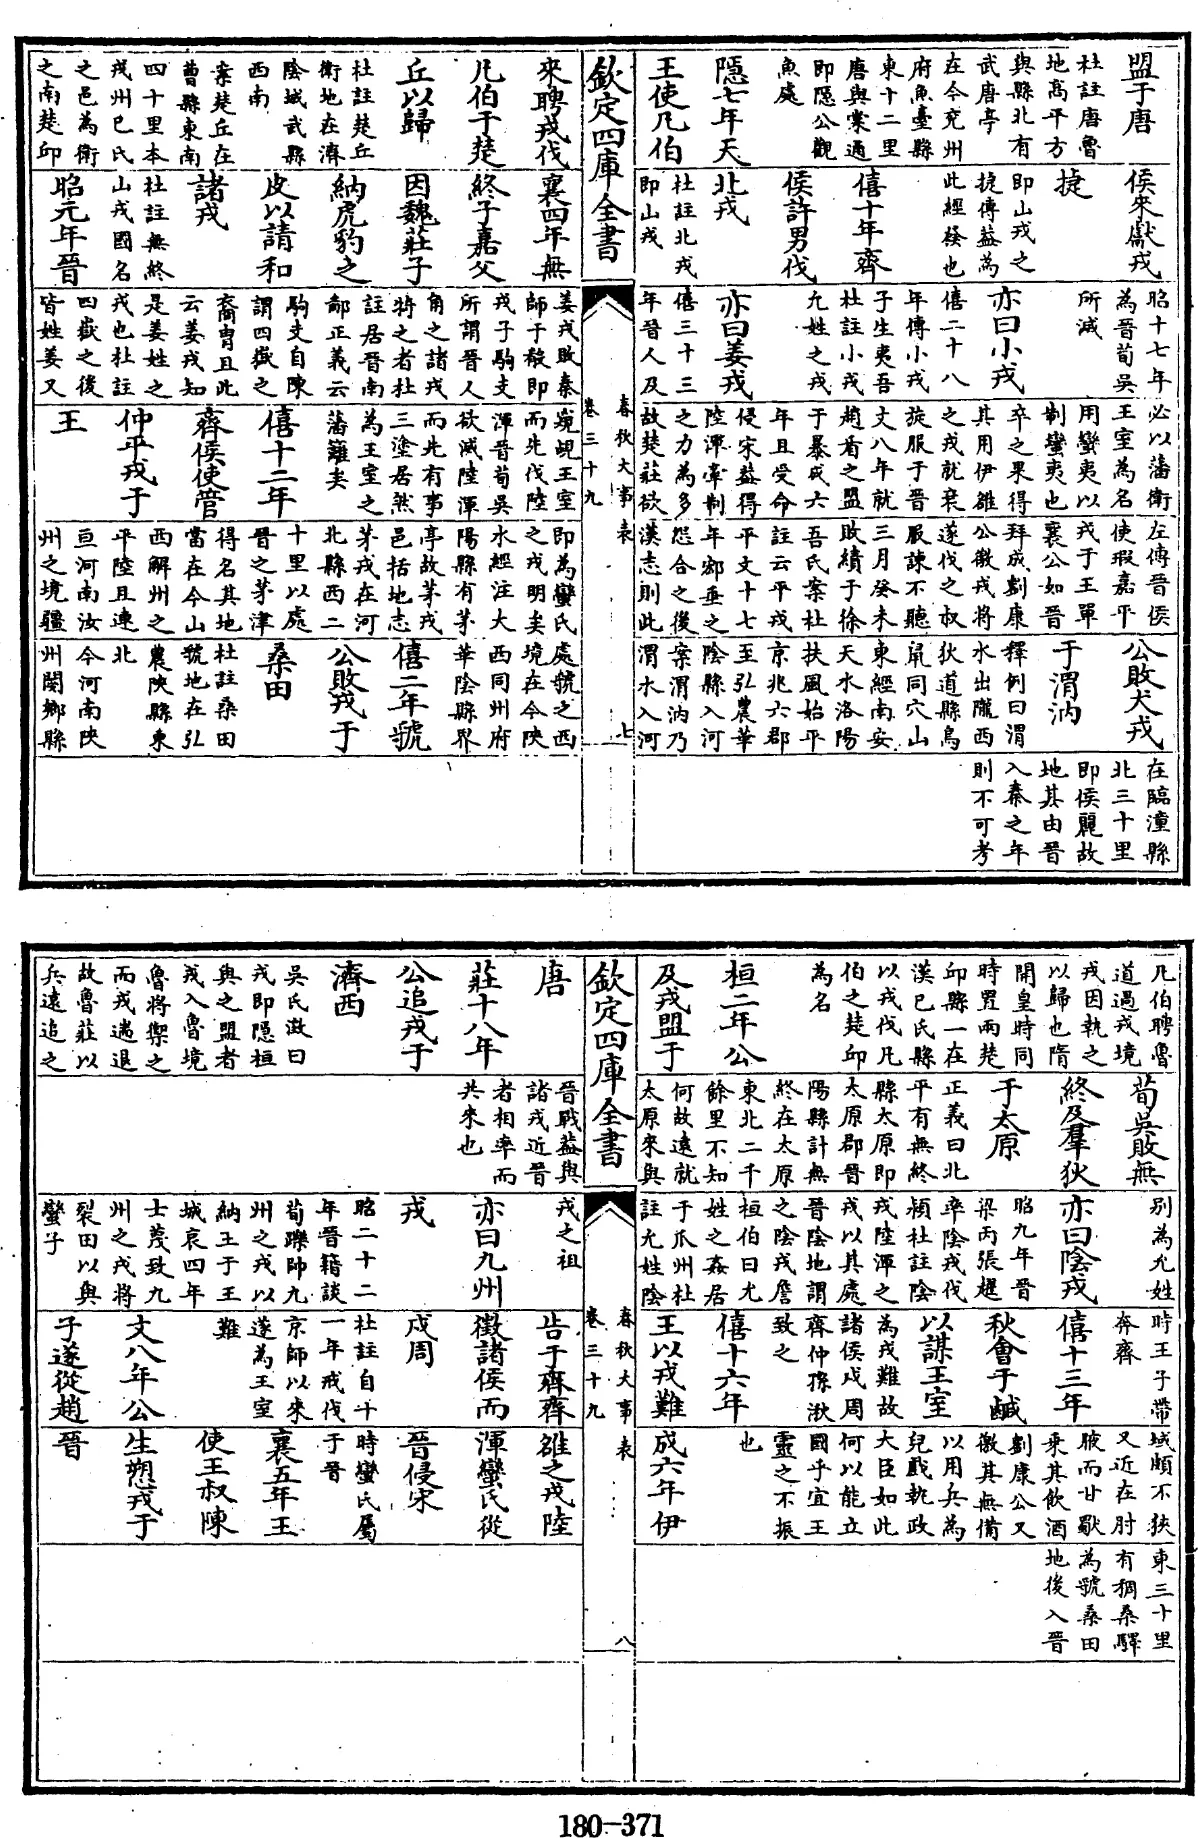 盟于唐
杜註唐魯
地高平方
與縣北有
武唐亭
在今兖州
府魚臺縣
東十二里
唐與棠通
即隱公觀
魚處
隱七年天
王使凡伯
侯來獻戎
捷
即山戎之
捷傳葢為
此經發也
僖十年齊
侯許男伐
北戎
杜註北戎
即山戎
昭十七年
為晉荀吳
所滅
亦曰小戎
僖二十八
年傳小戎
子生夷吾
杜註小戎
允姓之戎
亦曰姜戎
僖三十三
年晉人及
必以藩衛
王室為名
用蠻夷以
制蠻夷也
卒之果得
其用伊雒
之戎就衰
旋服于晉
文八年就
趙盾之盟
于暴成六
年且受命
侵宋葢得
陸渾牽制
之力為多
故楚莊欲
左傳晉侯
使瑕嘉平
戎于王單
襄公如晉
拜成劉康
公徼戎將
遂伐之叔
服諫不聽
三月癸未
敗績于徐
吾氏案杜
註云平戎
平文十七
年邲垂之
怨合之後
漢志則此
公敗犬戎
于渭汭
釋例曰渭
水出隴西
狄道縣鳥
鼠同穴山
東經南安
天水洛陽
扶風始平
京兆六郡
至弘農華
陰縣入河
案渭汭乃
渭水入河
在臨潼縣
北三十里
即侯麗故
地其由晉
入秦之年
則不可考
欽定四庫全書
春秋大事表
卷三十九
七
來聘戎伐
凡伯于楚
丘以歸
杜註楚丘
衛地在濟
陰城武縣
西南
案楚丘在
曹縣東南
四十里本
戎州巳氏
之邑為衛
之南楚邱
襄四年無
終子嘉父
因魏莊子
納虎豹之
皮以請和
諸戎
杜註無終
山戎國名
昭元年晉
姜戎敗秦
師于殽即
戎子駒支
所謂晉人
角之諸戎
犄之者杜
註居晉南
鄙正義云
駒支自陳
謂四嶽之
裔胄且此
云姜戎知
是姜姓之
戎也杜註
四嶽之後
皆姓姜又
窺覦王室
而先伐陸
渾晉荀吳
欲滅陸渾
而先有事
三塗居然
為王室之
藩籬矣
僖十二年
齊侯使管
仲平戎于
王
即為蠻氏
之戎明矣
水經注大
陽縣有茅
亭故茅戎
邑括地志
茅戎在河
北縣西二
十里以處
晉之茅津
得名其地
當在今山
西解州之
平陸且連
亘河南汝
州之境疆
處虢之西
境在今陜
西同州府
華陰縣界
僖二年虢
公敗戎于
桑田
杜註桑田
虢地在弘
農陜縣東
北
今河南陜
州閿鄉縣
凡伯聘魯
道過戎境
戎因執之
以歸也隋
開皇時同
時置兩楚
邱縣一在
漢巳氏縣
以戎伐凡
伯之楚邱
為名
桓二年公
及戎盟于
荀吳敗無
終及羣狄
于太原
正義曰北
平有無終
縣太原即
太原郡晉
陽縣計無
終在太原
東北二千
餘里不知
何故遠就
太原來與
别為允姓
亦曰陰戎
昭九年晉
梁丙張趯
率陰戎伐
潁杜註陰
戎陸渾之
戎以其處
晉陰地謂
之陰戎詹
桓伯曰允
姓之姦居
于瓜州杜
註允姓陰
時王子帶
奔齊
僖十三年
秋會于鹹
以謀王室
為戎難故
諸侯戍周
齊仲孫湫
致之
僖十六年
王以戎難
域頗不狹
又近在肘
腋而甘歜
乘其飲酒
劉康公又
徼其無備
以用兵為
兒戲執政
大臣如此
何以能立
國乎宜王
靈之不振
也
成六年伊
東三十里
有稠桑驛
為虢桑田
地後入晉
欽定四庫全書
春秋大事表
卷三十九
八
唐
莊十八年
公追戎于
濟西
吳氏澂曰
戎即隱桓
與之盟者
戎入魯境
魯將禦之
而戎遁退
故魯莊以
兵遠追之
晉戰葢與
諸戎近晉
者相率而
共來也
戎之祖
亦曰九州
戎
昭二十二
年晉籍談
荀躒帥九
州之戎以
納王于王
城哀四年
士蔑致九
州之戎將
裂田以與
蠻子
告于齊齊
徵諸侯而
戍周
杜註自十
一年戎伐
京師以來
遂為王室
難
文八年公
子遂從趙
雒之戎陸
渾蠻氏從
晉侵宋
時蠻氏屬
于晉
襄五年王
使王叔陳
生愬戎于
晉
180-371